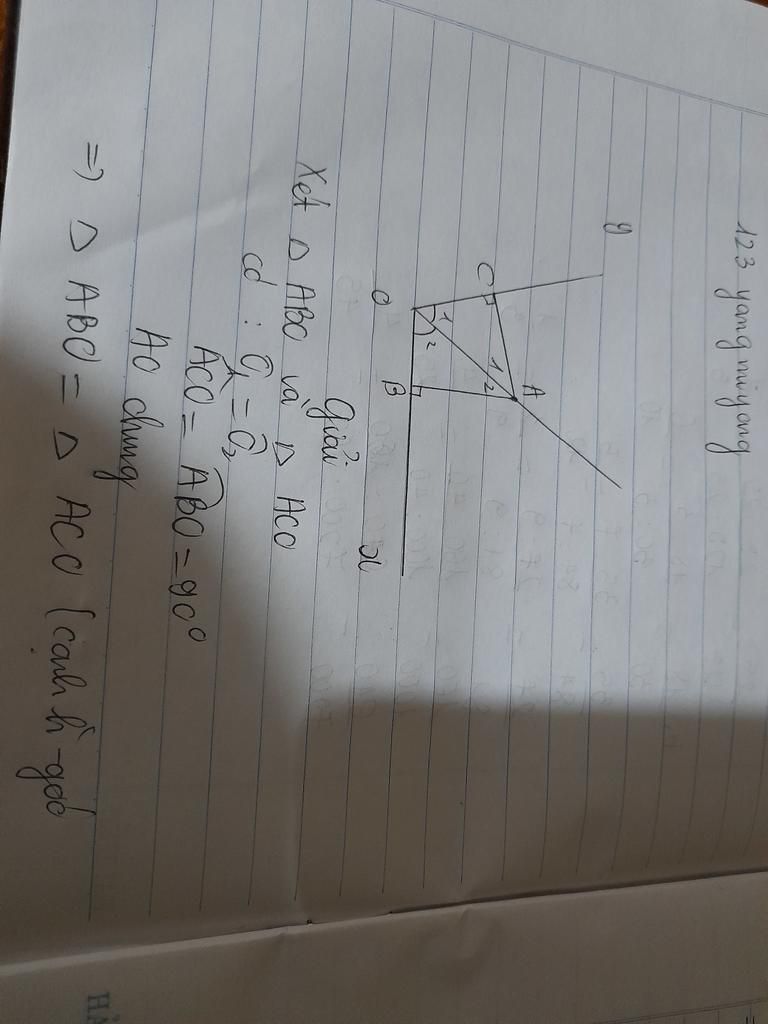 123 yang miyang
y
C
A
1
2
1
2
O
B
x
Giải
Xét △ ABO và △ ACO
có : Ô₁ = Ô₂
ACO = ABO = 90⁰
AO chung
=> △ ABO = △ ACO (cạnh h̀ - góc